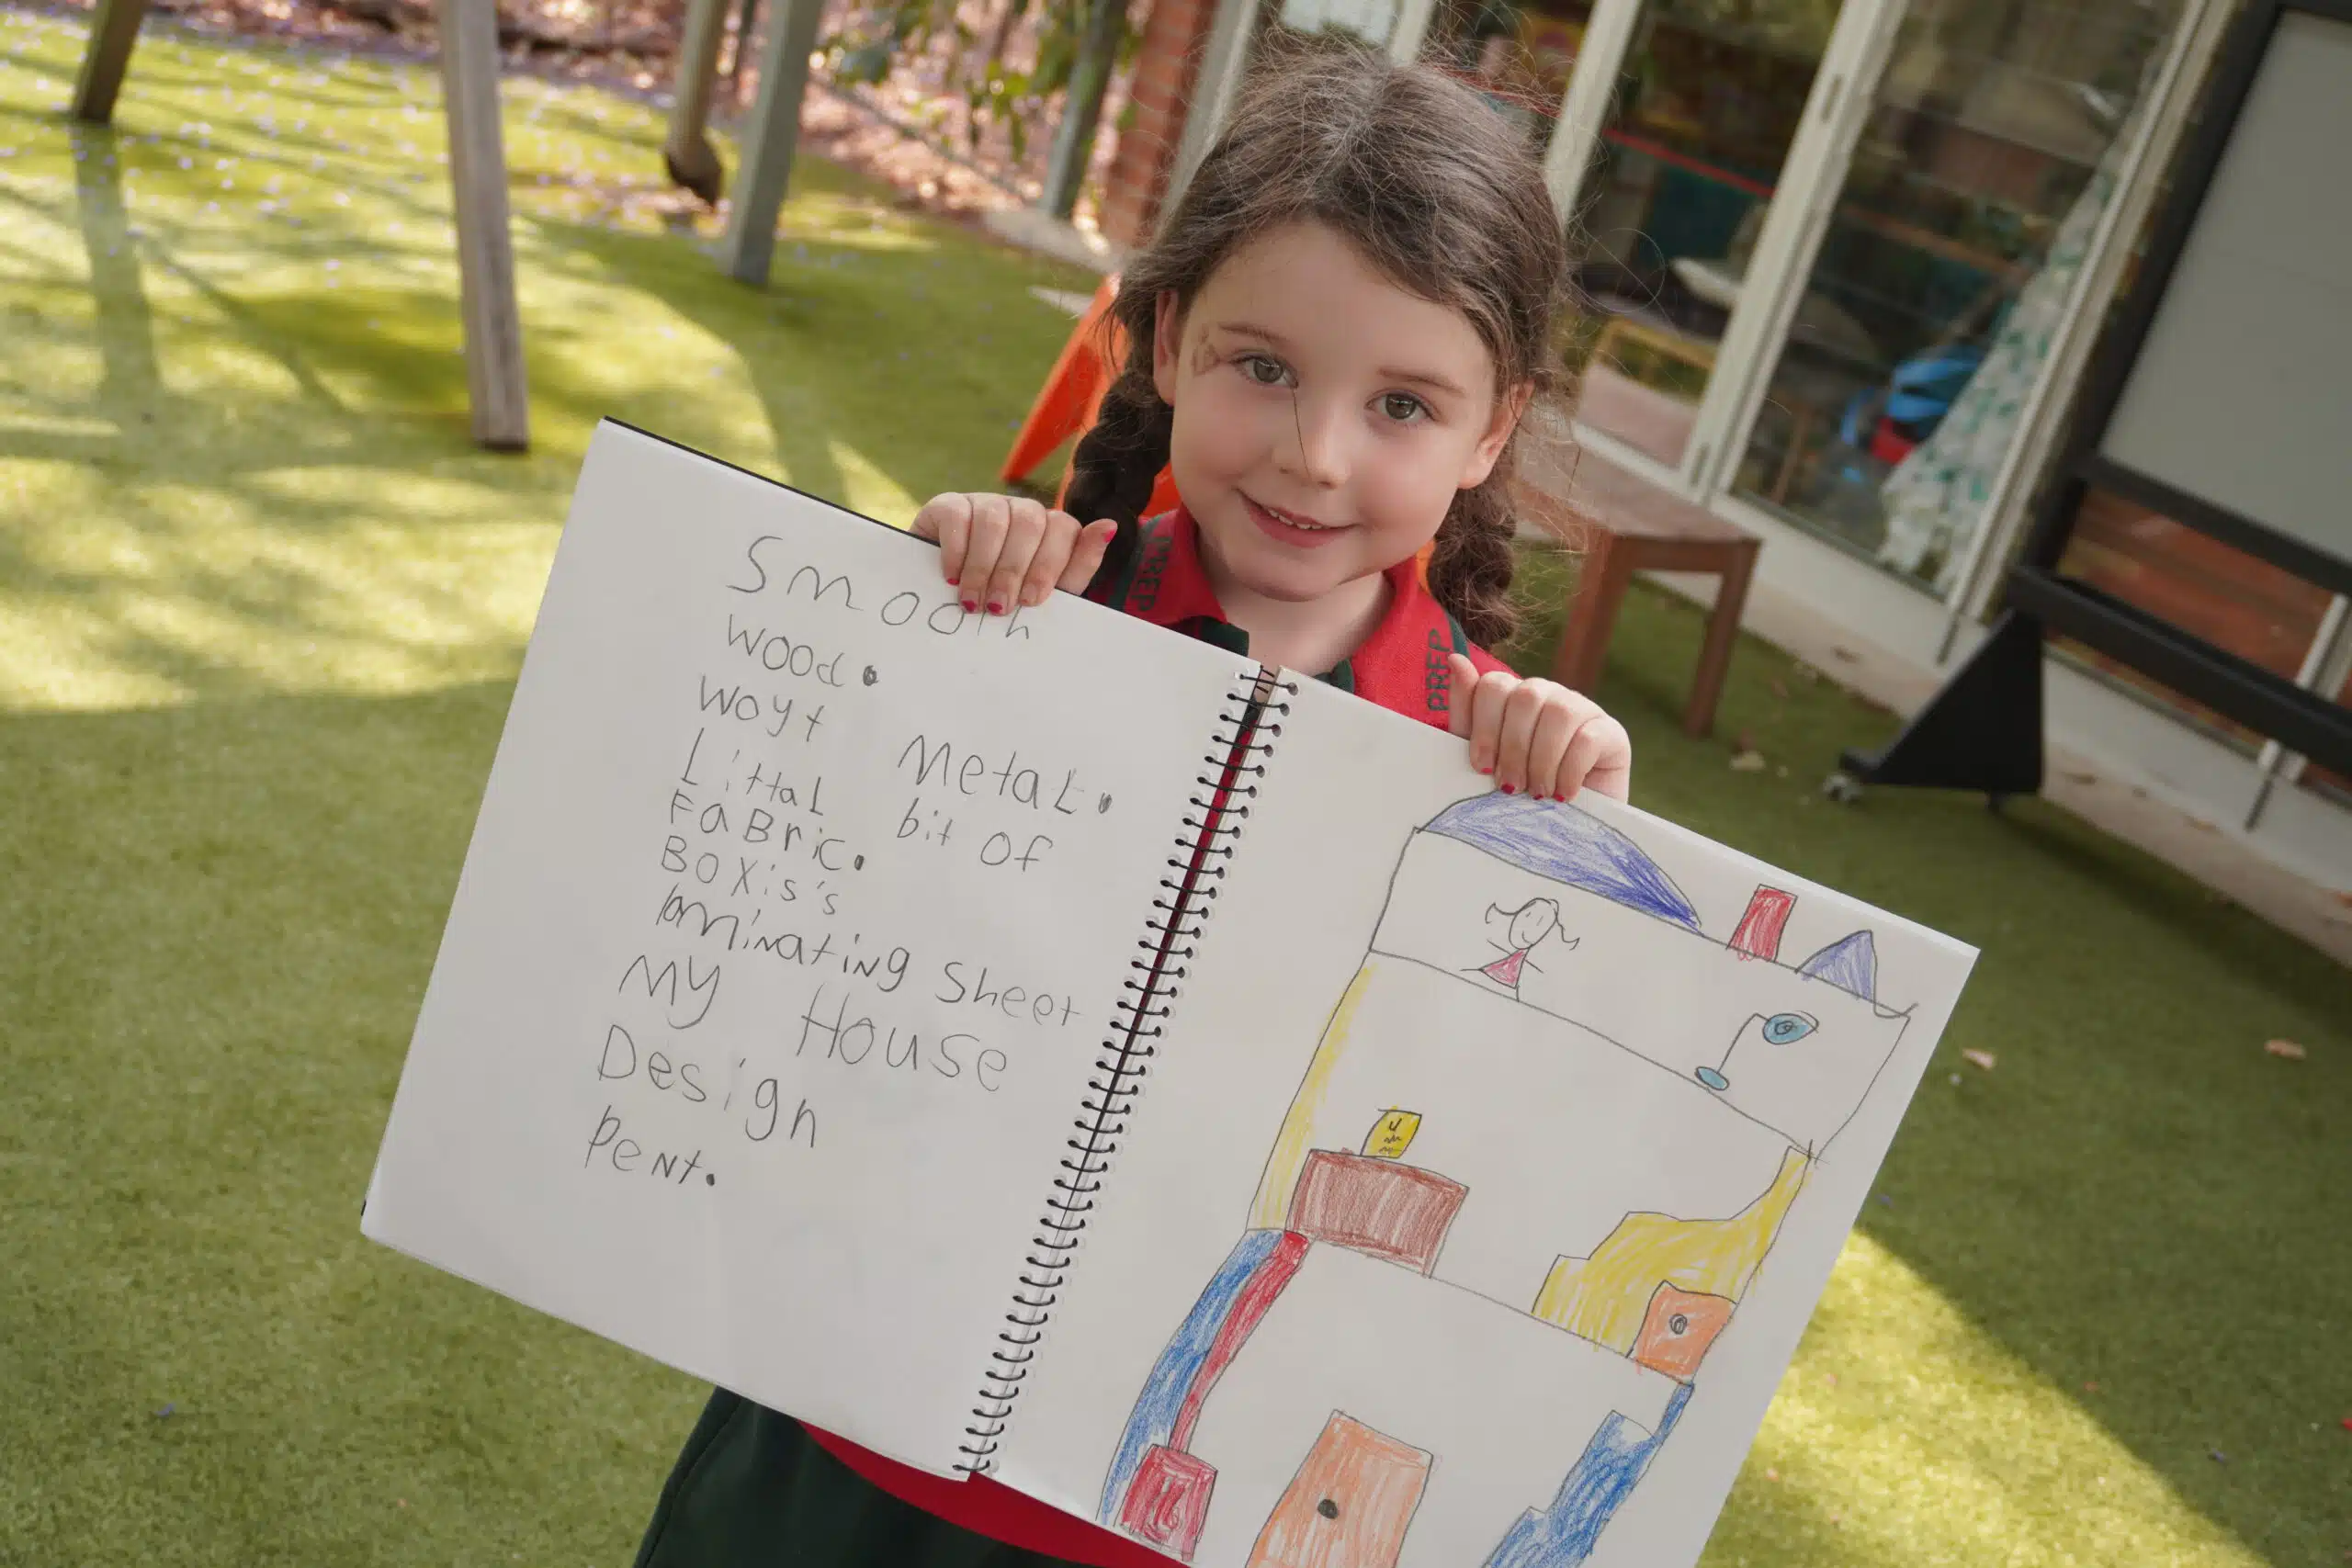 Smooth
wood.
woyt Metal.
Littal bit of
FaBric.
BOXis's
laminating Sheet
MY House
Design
Pent.
PREP
PREP